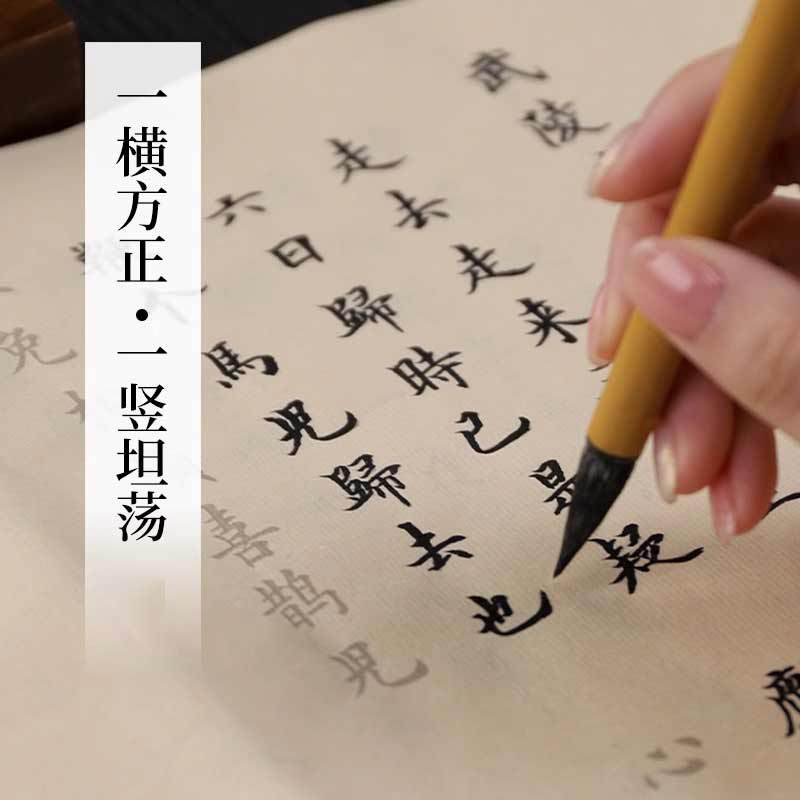 一横方正·一竖坦荡
武陵
走去走来
六日歸時已是疑
馬兒歸去也
心
喜鹊兒
免